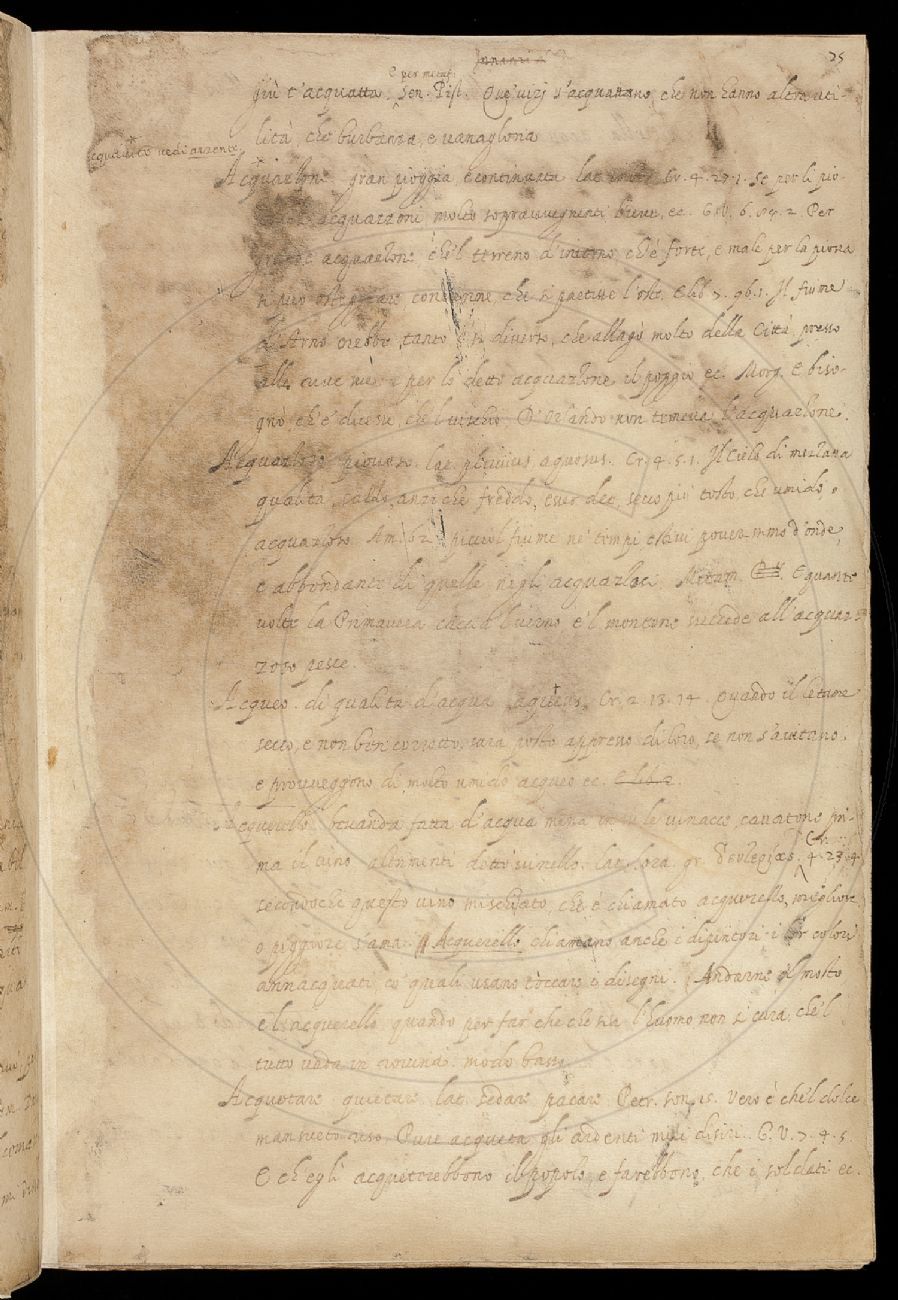 25
e per metaf.
più t'acquatta. Sen. Pist. Que' vizj s'acquattano, che non hanno altra uti-
lità, che burbanza, e vanagloria
vedi arzente
Acquazzone gran pioggia, e continuata lat. Cr. 4. 27. 1. Se per li pio-
acquazzoni molto sopravvegnenti beve, ec. G. V. 6. 2. Per
acquazzone che'l terreno d'intorno, ch'è forte, e male per la piova
convenne, che si partisse l'oste. E lib. 7. 96. 1. Il fiume
d'Arno crebbe, tanto diverso, che allagò molto della Città presso
alle per lo detto acquazzone il poggio ec. Morg. E biso-
gnò, ch'e' dicesse, che'l vischio D'Orlando non temeva l'acquazzone.
Acquazzoso piovoso. lat. pluvius, aquosus. Cr. 4. 5. 1. Il Cielo di mezzana
qualità, caldo, anzi che freddo, esser dee, secco più tosto, che umido, o
acquazzoso. Am. 62. piccol fiume ne' tempi estivi poverissimo d'onde,
e abbondante di quelle negli acquazzosi. Metam. E quante
volte la Primavera caccia l'verno, e'l montone succede all'acquaz-
zoso pesce.
Acqueo. di qualità d'acqua. aqueus. Cr. 2. 13. 14. Quando il letame
secco, e non ben corrotto, sarà posto appresso di loro, se non s'aiutano,
e provveggono di molto umido acqueo ec.
Acquerello bevanda fatta d'acqua messa in su le vinacce, cavatone pri-
Cr.
ma il vino altrimenti detto vinello. lat. lora. gr. 4. 23. 4
secondoché questo vino mischiato, che è chiamato acquerello, migliore
o piggiore s'ama. Acquerello chiamano anche i dipintori i lor colori
annacquati, co' quali usano toccare i disegni. Andarne il mosto
e l'acquerello quando per far che che sia l'huomo non si cura, che'l
tutto vada in rovina. modo basso
Acquetare quietare lat. sedare pacare Petr. son. 15. Vero è che'l dolce
mansueto riso, Pure acqueta gli ardenti miei disiri. G. V. 7. 4. 5.
E ch'egli acqueterebbono il popolo, e farebbono, che i soldati ec.